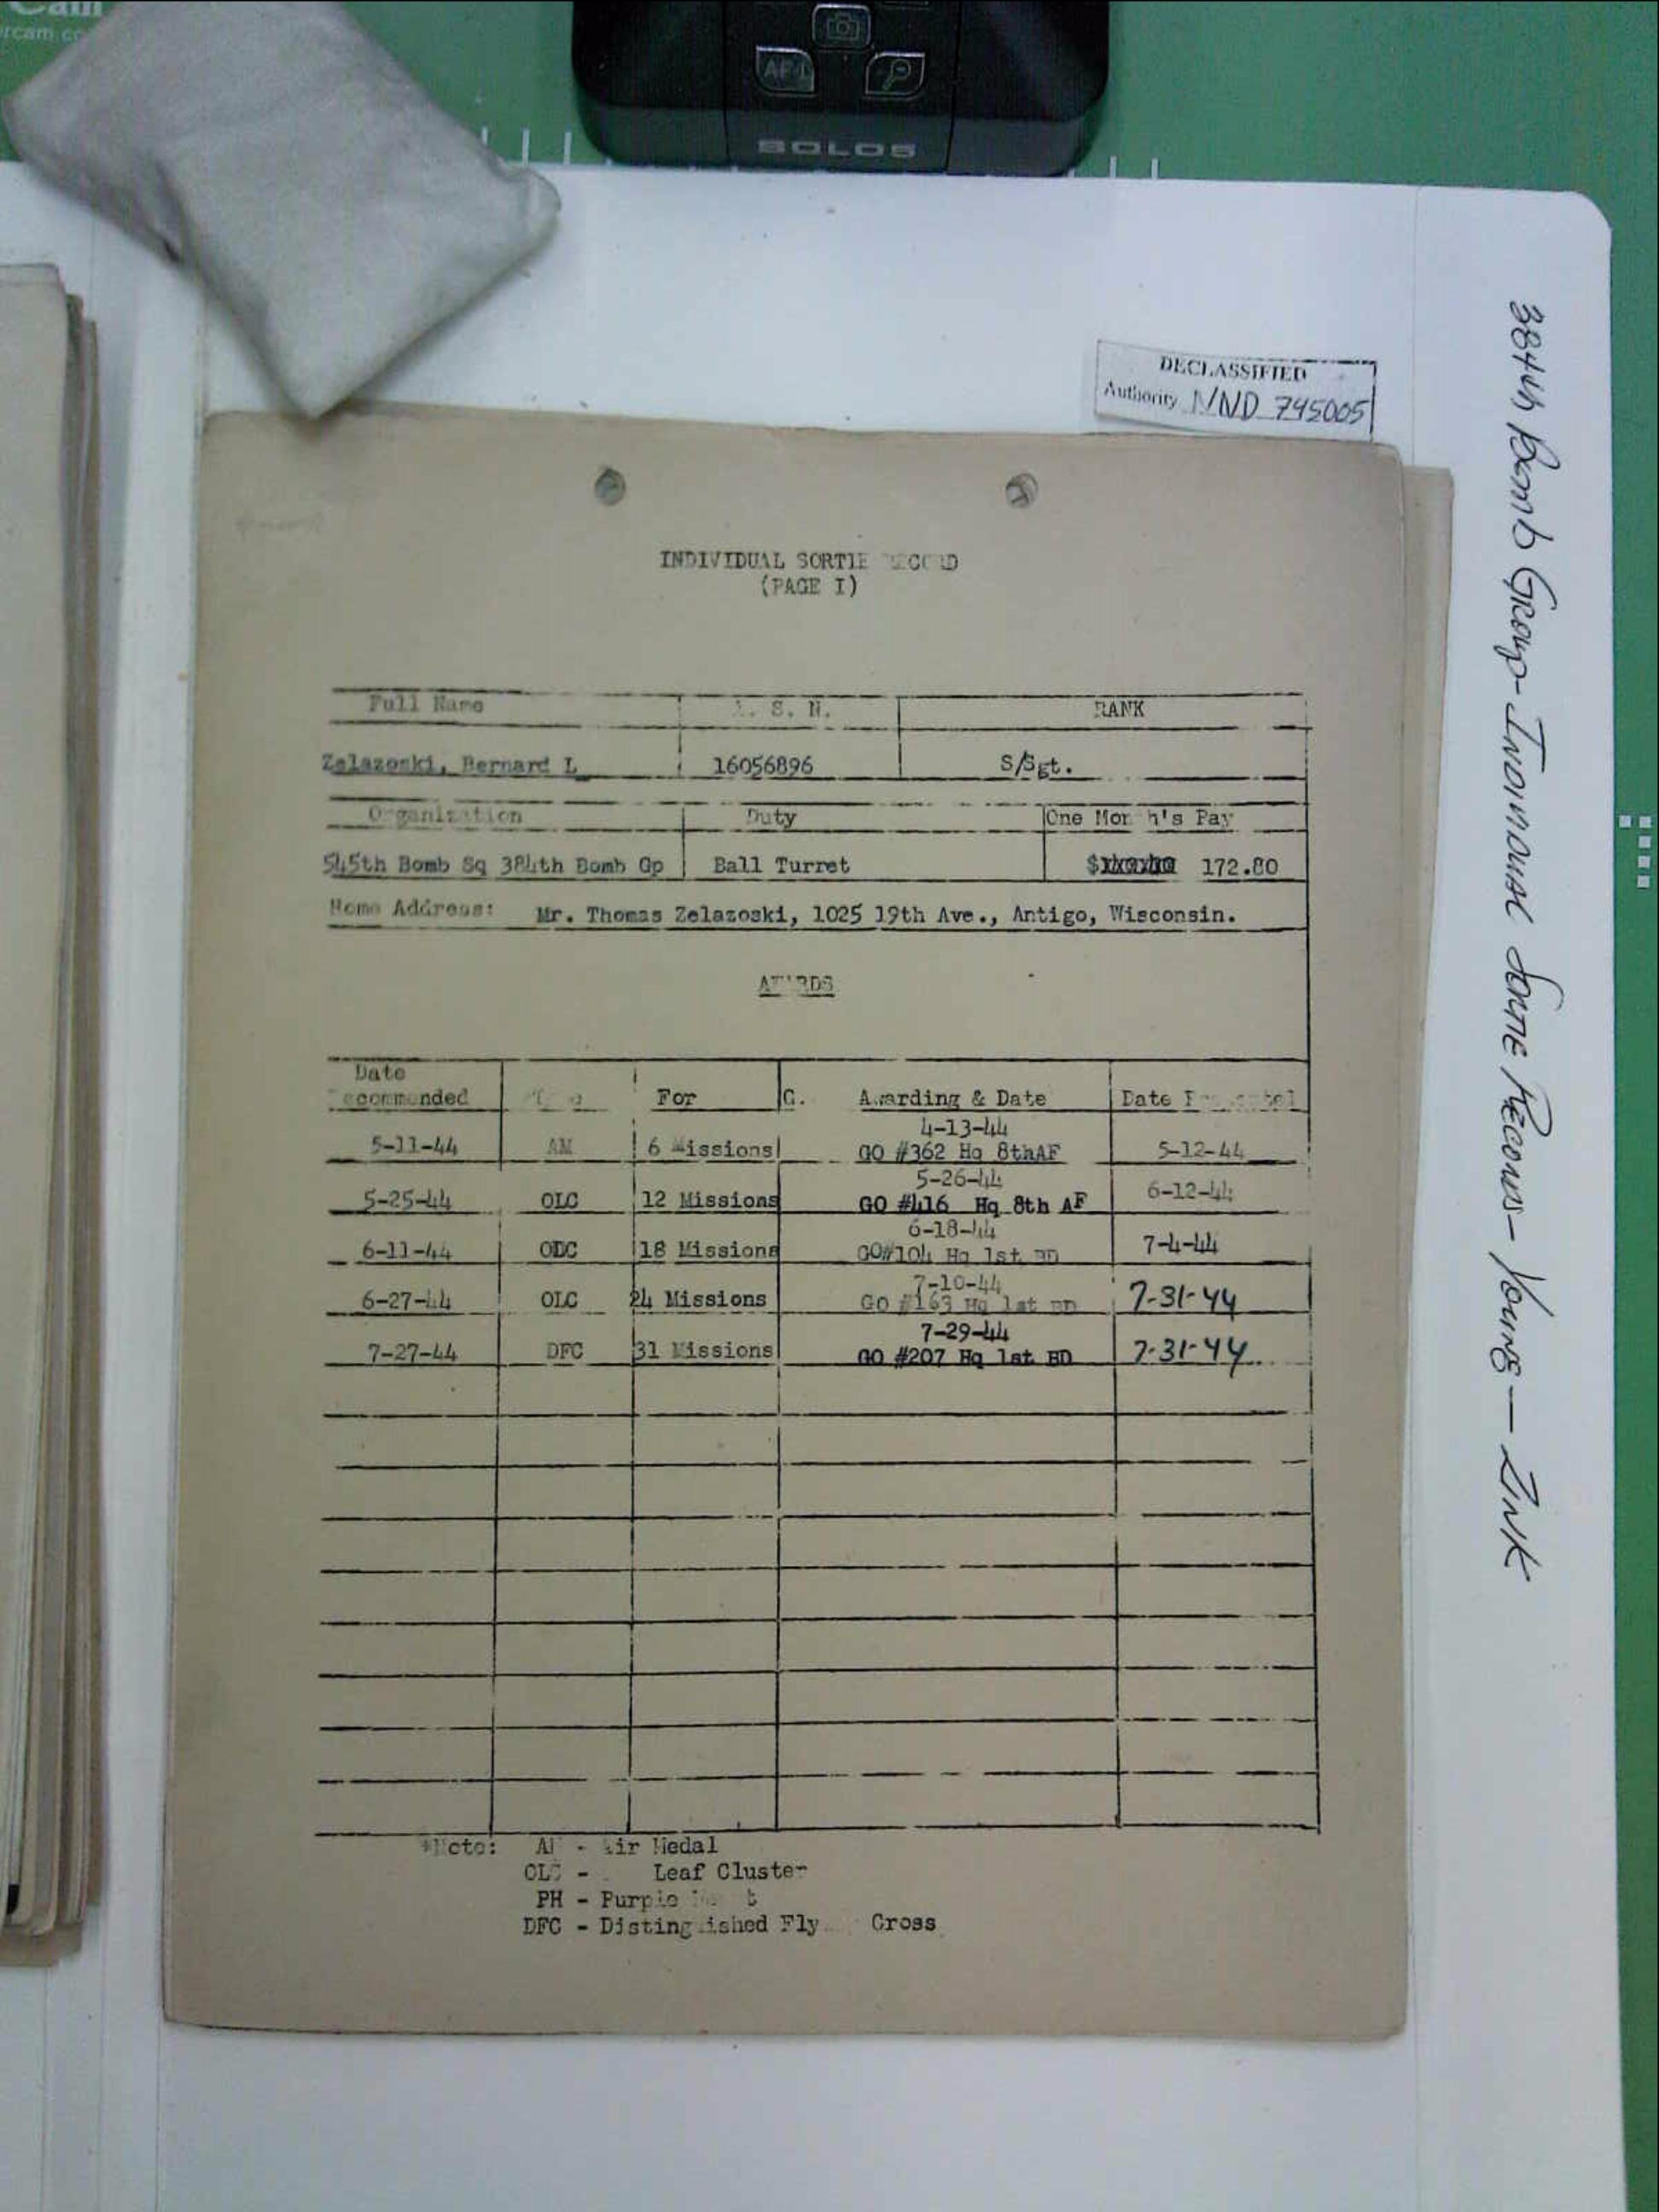 Cam
AF-L
SOLOS
DECLASSIFIED
Authority NND 745005
384th Bomb Group - Individual Sortie Records - Young — Zink
INDIVIDUAL SORTIE
(PAGE I)
Full Name S. N. RANK
Zelazoski, Bernard L 16056896 S/Sgt.
Organization Duty One Mon h's Pay
545th Bomb Sq 384th Bomb Gp Ball Turret $ 172.80
Home Address: Mr. Thomas Zelazoski, 1025 19th Ave., Antigo, Wisconsin.
AWARDS
Date
ecommended For G. Awarding & Date Date
4-13-44
5-11-44 AM 6 Missions GO #362 Hq 8thAF 5-12-44
5-26-44
5-25-44 OLC 12 Missions GO #416 Hq 8th AF 6-12-44
6-18-44
6-11-44 ODC 18 Missions GO#104 Hq 1st BD 7-4-44
7-10-44
6-27-44 OLC 24 Missions GO #163 Hq 1st BD 7-31-44
7-29-44
7-27-44 DFC 31 Missions GO #207 Hq 1st BD 7-31-44
*Note: AM - Air Medal
OLC - Leaf Cluster
PH - Purple
DFC - Distinguished Fly Cross